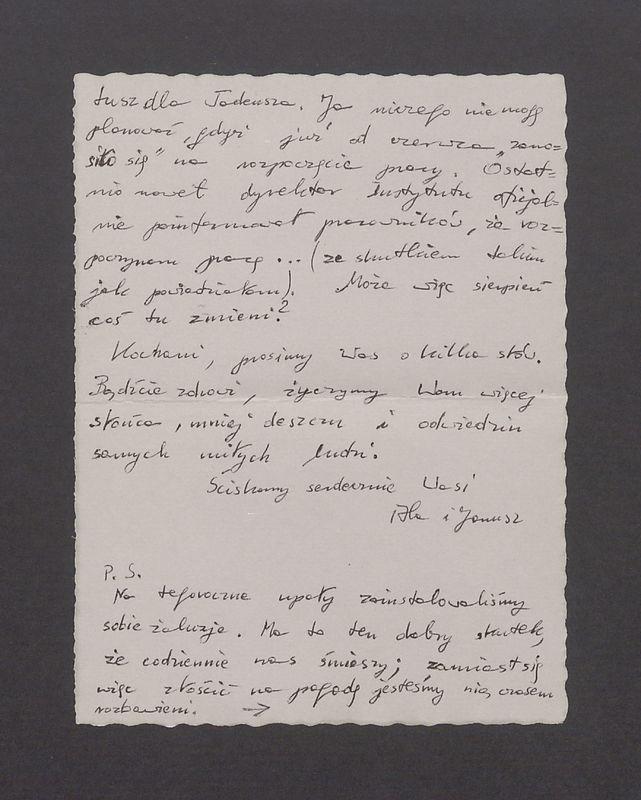 tusz dla Tadeusza. Ja niczego nie mogę
planować, gdyż już od czerwca „zano=
siło się” na rozpoczęcie pracy. Ostat=
nio nawet dyrektor Instytutu oficjal=
nie poinformował pracowników, że roz=
poczynam pracę ... (ze skutkiem takim
jak powiedziałam). Może więc sierpień
coś tu zmieni?
Kochani, prosimy Was o kilka słów.
Bądźcie zdrowi, życzymy Wam więcej
słońca, mniej deszczu i odwiedzin
samych miłych ludzi.
Ściskamy serdecznie Wasi
Ala i Janusz
P.S.
Na tegoroczne upały zainstalowaliśmy
sobie żaluzje. Ma to ten dobry skutek,
że codziennie nas śmieszy; zamiast się
więc złościć na pogodę jesteśmy nią czasem
rozbawieni. →